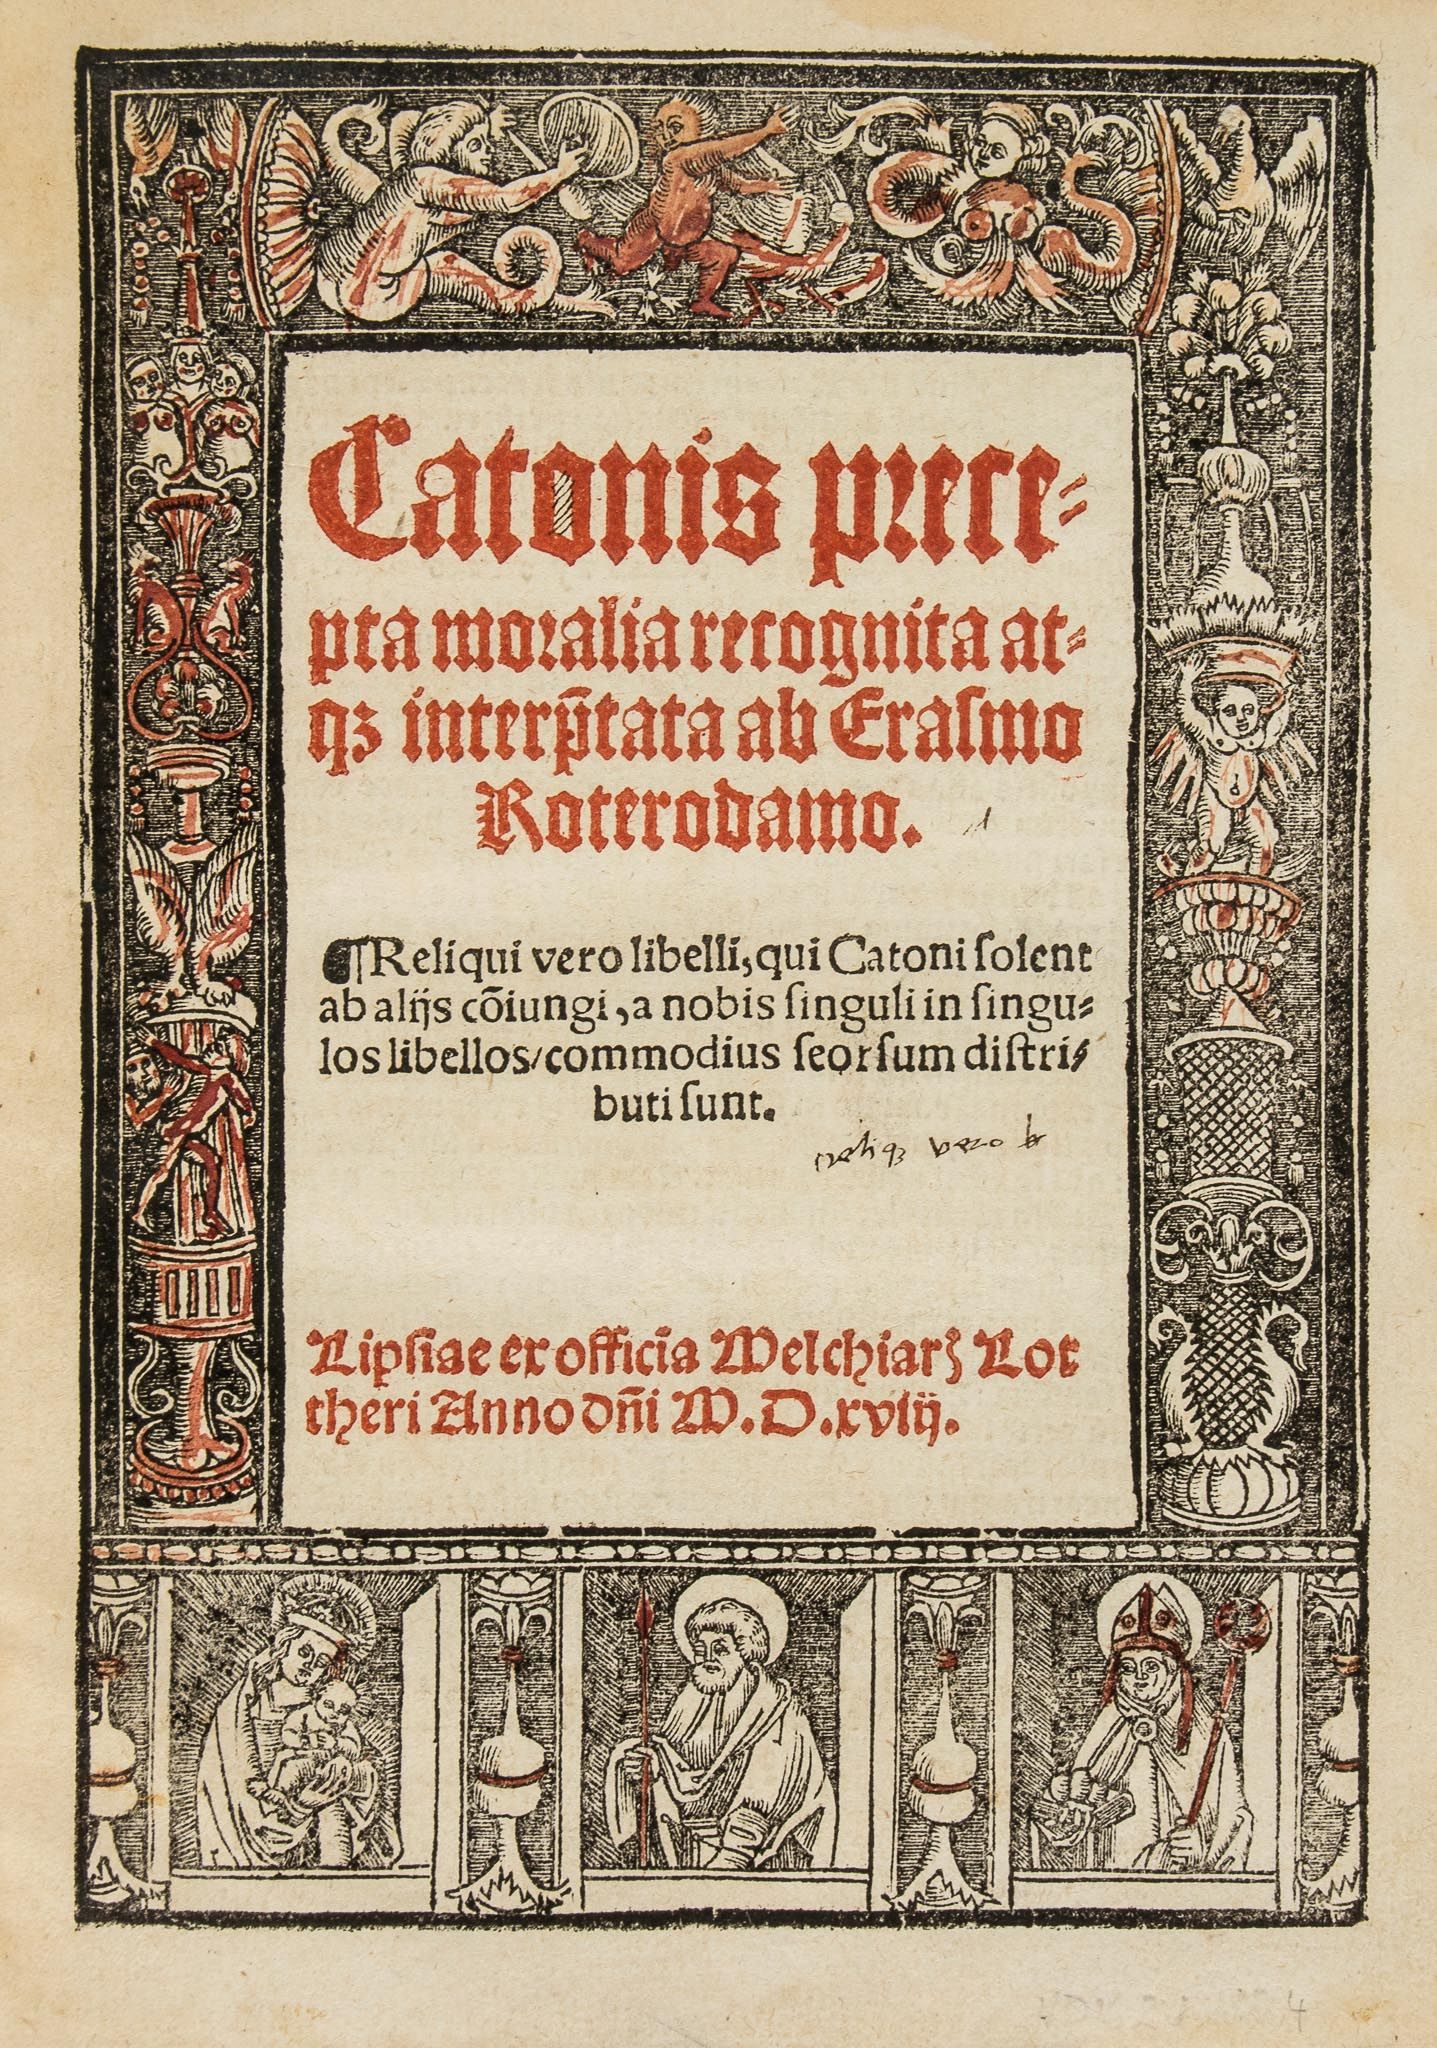 Catonis prece⸗
pta moralia recognita at⸗
qꝫ interp̃tata ab Erasmo
Roterodamo.
¶Reliqui vero libelli, qui Catoni ſolent
ab alijs cõiungi, a nobis ſinguli in ſingu⸗
los libellos/commodius ſeorſum diſtri⸗
buti ſunt.
reliqꝫ vero
Lipsiae ex officĩa Melchiarꝫ Lot
theri Anno dñi M.D.xviij.
4